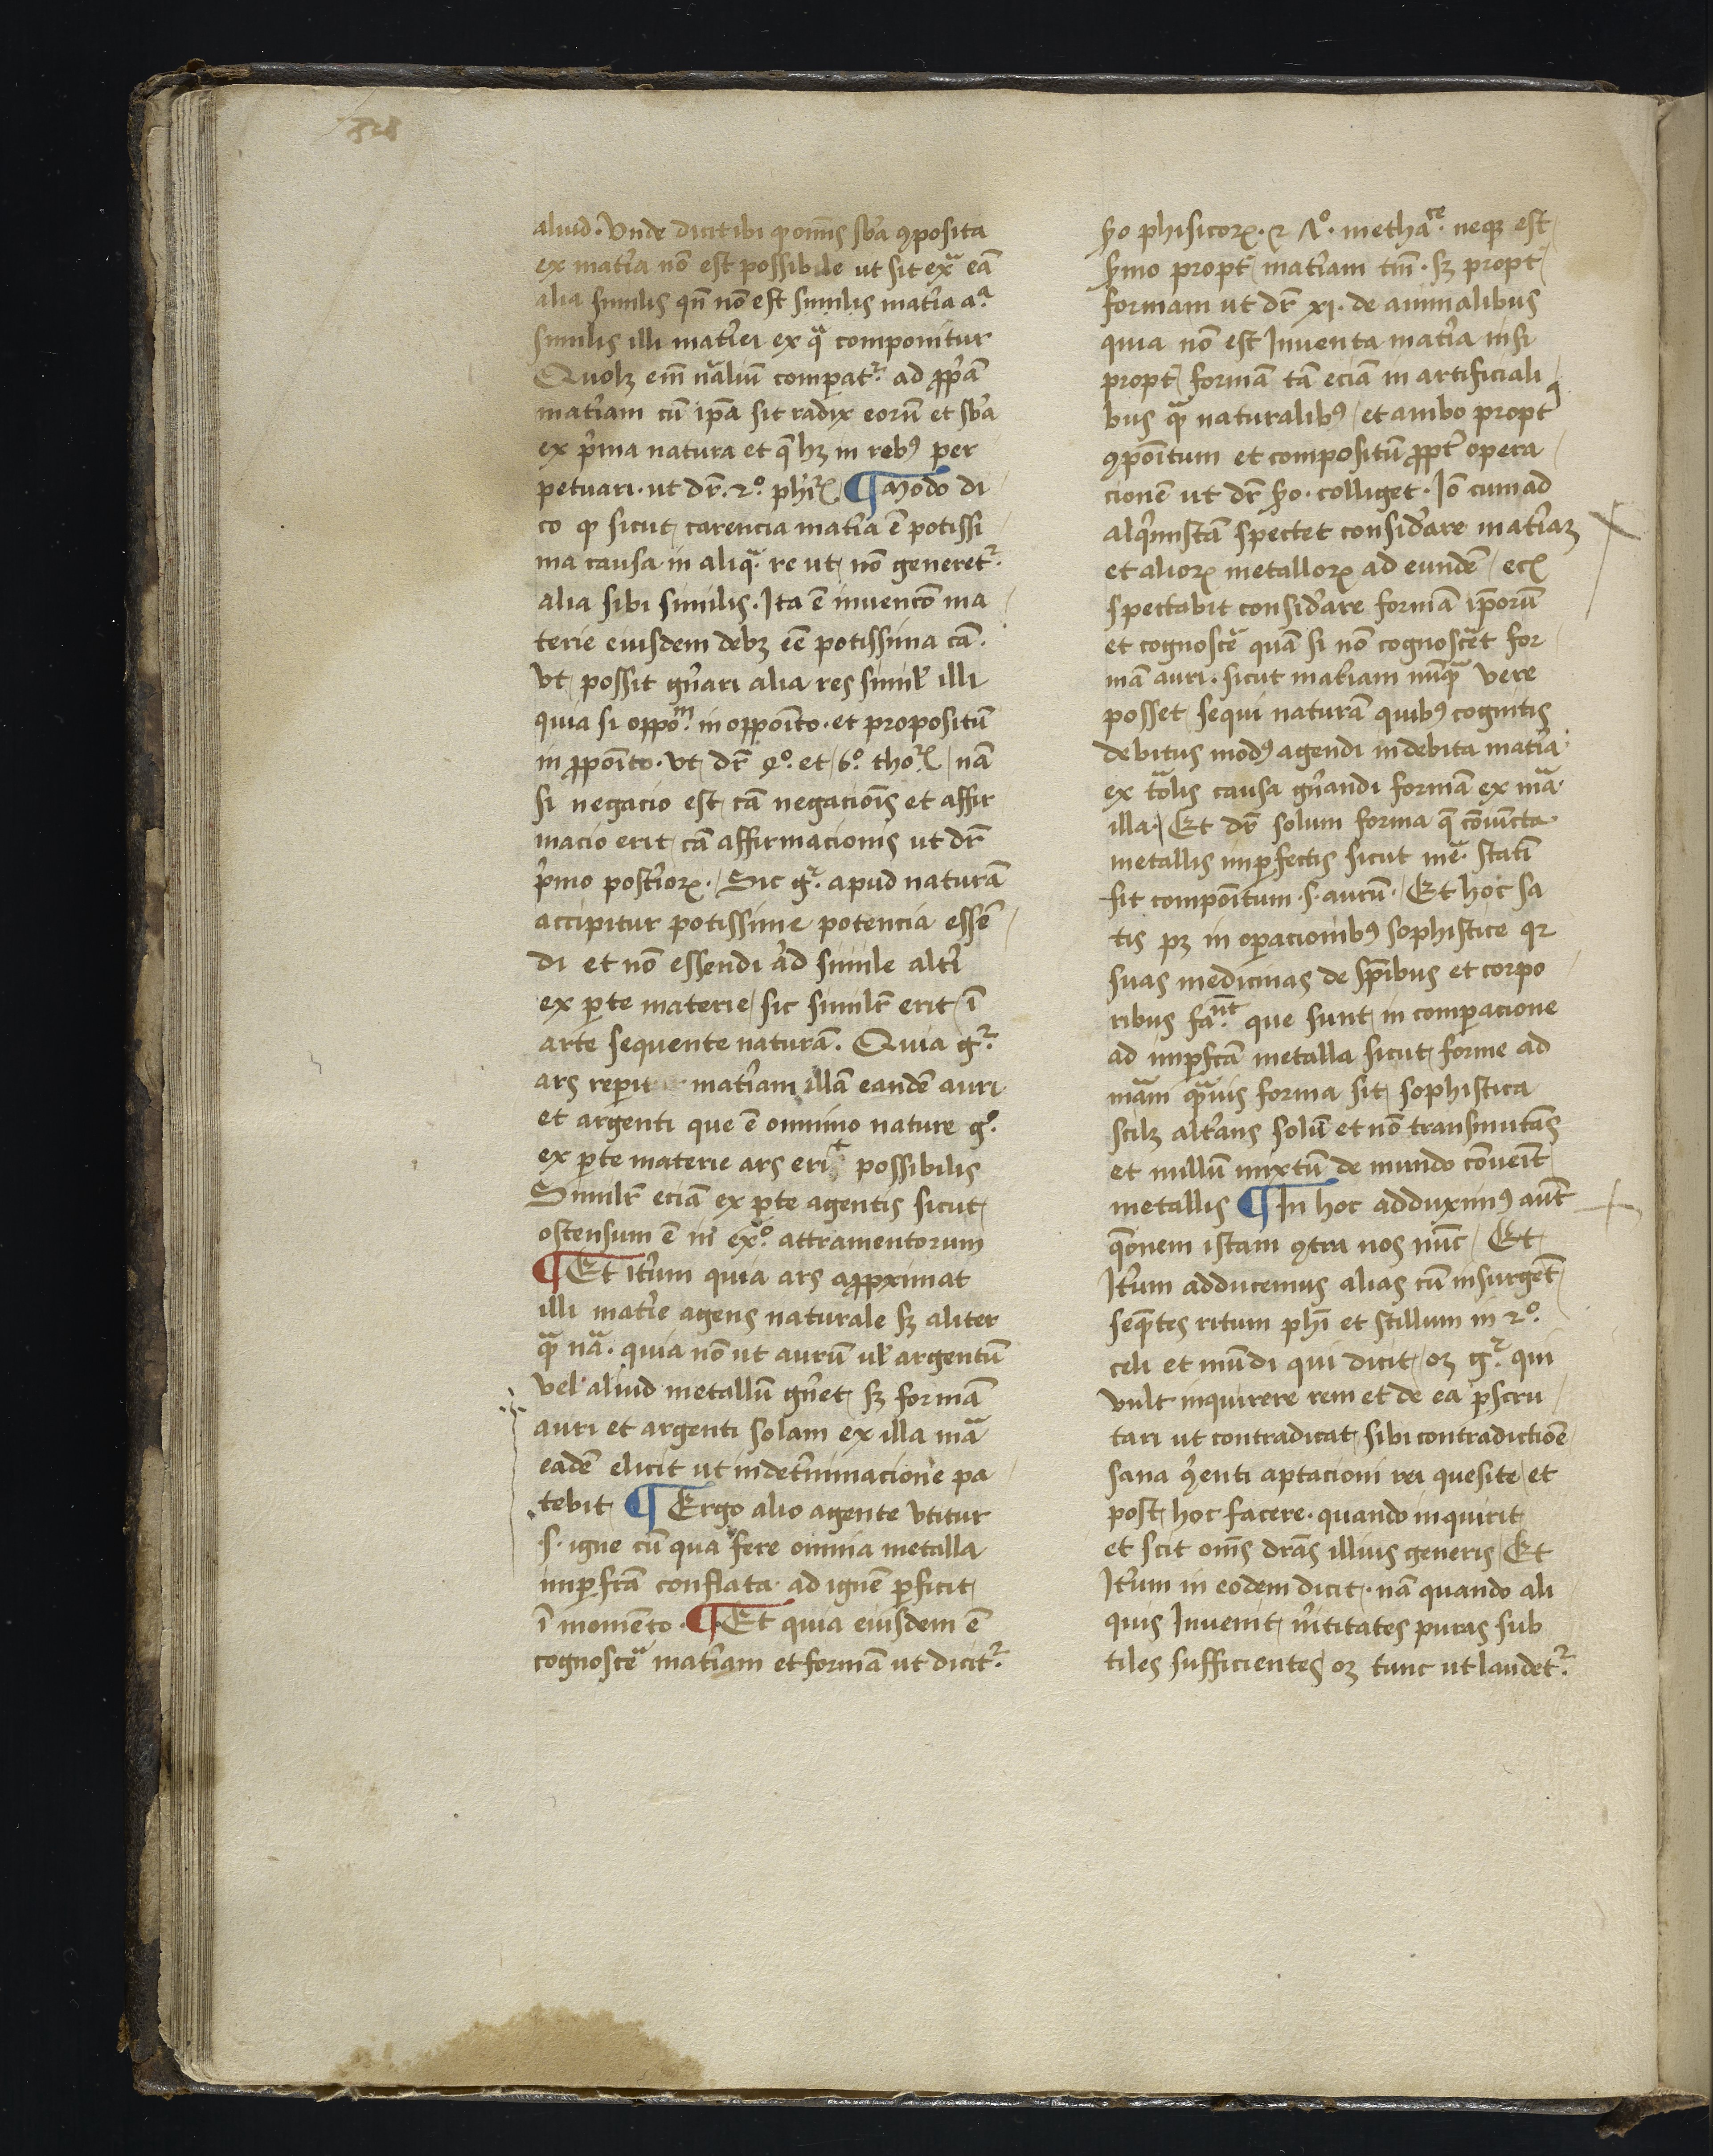 828
aliud. Vnde dicit ibi ꝙ om̄is sb̄a ꝯposita
ex mat̄ia nō est possibile ut sit ex̄a eā
alia similis qn̄ nō est similis mat̄ia aᵃ
similis illi mat̄iei ex qᵃ componitur
Quolꝫ em̄ nāliū comparat᷑ ad ꝓpā
mat̄iam cū ip̄a sit radix eorū et sb̄a
ex p̄ma natura et q̄ hꝫ in rebꝰ per
petuari. ut dr̄. 2º. phiꝝ. ¶ Modo di
co ꝙ sicut carencia mat̄ia ē potissi
ma causa in aliqᵃ re ut nō generet᷑
alia sibi similis. Ita ē invencō ma
terie eiusdem debꝫ eē potissima cā.
Vt possit gn̄ari alia res simil̄ illi
quia si oppoᵐ. in oppoīto. et propositū
in ꝓpoīto. Vt dr̄ 4º. et 6º. thoꝝ nā
si negacio est cā negacioīs et affir
macio erit cā affirmacionis ut dr̄
p̄mo post̄ioꝝ. Sic g᷑. apud naturā
accipitur potissime potencia essē
di et nō essendi ad simile alt̄i
ex ꝑte materie sic similr̄ erit ī
arte sequente naturā. Quia g᷑.
ars reperit mat̄iam illā eandē auri
et argenti que ē omnino nature gº.
ex ꝑte materie ars erit possibilis
Similr̄ eciā ex ꝑte agentis sicut
ostensum ē in exº. attramentorum
¶ Et it̄um quia ars aꝓpximat
illi mat̄ie agens naturale sꝫ aliter
qᵃ nā. quia nō ut aurū ul̄ argentū
vel aliud metallū gn̄et sꝫ formā
auri et argenti solam ex illa mā
eadē elicit ut in det̄minacione pa
tebit ¶ Ergo alio agente vtitur
.s. igne cū qua fere omnia metalla
imꝑfcā conflata ad ignē ꝑficit
ī momēto. ¶ Et quia eiusdem ē
cognosc̄e mat̄iam et formā ut dicit᷑
ẜo phisicoꝝ. ⁊ Λº. methāᶜᵉ. neqꝫ est
ẜmo propt̄ mat̄iam tm̄. sꝫ propt̄
formam ut dr̄ xi. de animalibus
quia nō est Inventa mat̄ia nisi
propt̄ formā tā eciā in artificiali
bus qᵃ naturalibꝰ et ambo propt̄
ꝯpoītum et compositū ꝓpt̄ opera
cionē ut dr̄ ẜo. colliget. Iō cum ad
alq̄mistā spectet consid̄are mat̄iaꝫ
et alioꝝ metalloꝝ ad eundē ecꝝ
spectabit consid̄are formā ip̄orū
et cognosc̄e quā si nō cognosc̄et for
mā auri. sicut mat̄iam nūqᵃ vere
posset sequi naturā quibꝰ cognitis
debitus modꝰ agendi in debita mat̄ia
ex t̄alis causa gn̄andi formā ex mā
illa. Et dr̄ solum forma q̄ cōiuncta
metallis imꝑfectis sicut mē. statī
fit compoītum .s. aurū. Et hoc sa
tis pꝫ in oꝑacionibꝰ sophistice qꝛ
suas medicinas de sp̄ibus et corpo
ribus faⁿᵗ. que sunt in comparacione
ad imꝑfcā metalla sicut forme ad
mām qᵃuis forma sit sophistica
scilꝫ alt̄ans solū et nō transmutās
et nullū mixtū de mundo cōveīt
metallis ¶ In hoc adduximꝰ aūt
q̄onem istam ꝯtra nos nūc Et
It̄um adducemus alias cū insurgēt
seq̄tes ritum phī et stillum in 2º.
celi et mūdi qui dicit oꝫ g᷑. qui
vult inquirere rem et de ea ꝑscru
tari ut contradicat sibi contradictiōe
sana ꝯenti aptacioni rei quesite et
post hoc facere. quando inquirit
et scit om̄s dr̄as illius generis Et
It̄um in eodem dicit. nā quando ali
quis Invenit v̄itates puras sub
tiles sufficientes oꝫ tunc ut laudet᷑.